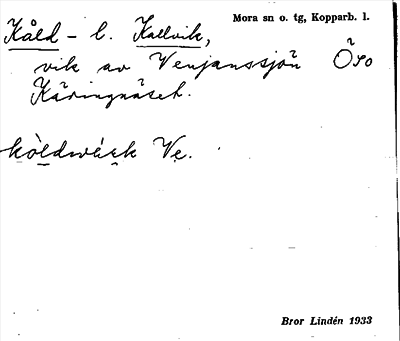 Mora sn o. tg, Kopparb. l.
Kåld - l. Kallvik,
vik av Venjanssjön Öso
Käringnäset.
Ve.
Bror Lindén 1933